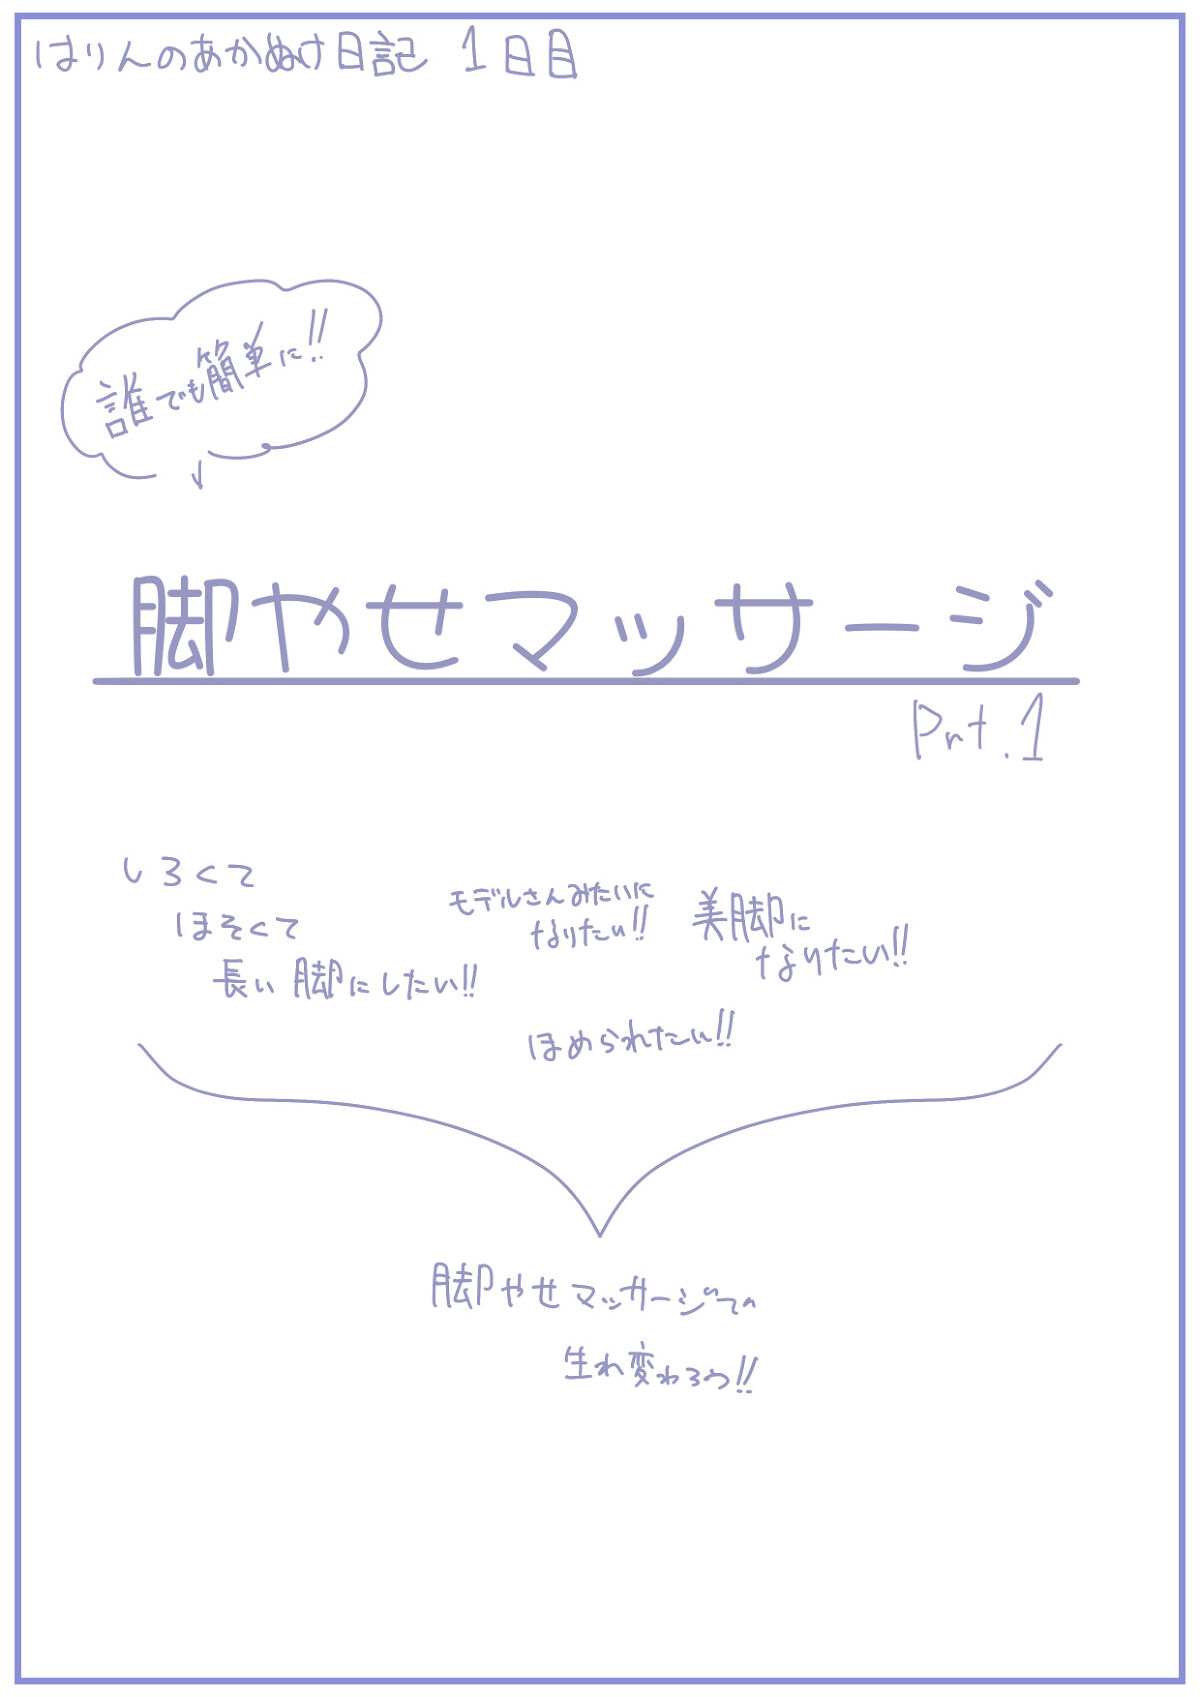 はりんのあかぬけ日記 1日目
誰でも簡単に!!
脚やせマッサージ
Prt.1
しろくて
ほそくて
長い脚にしたい!!
モデルさんみたいに
なりたい!!
美脚に
なりたい!!
ほめられたい!!
脚やせマッサージで
生れ変わろう!!